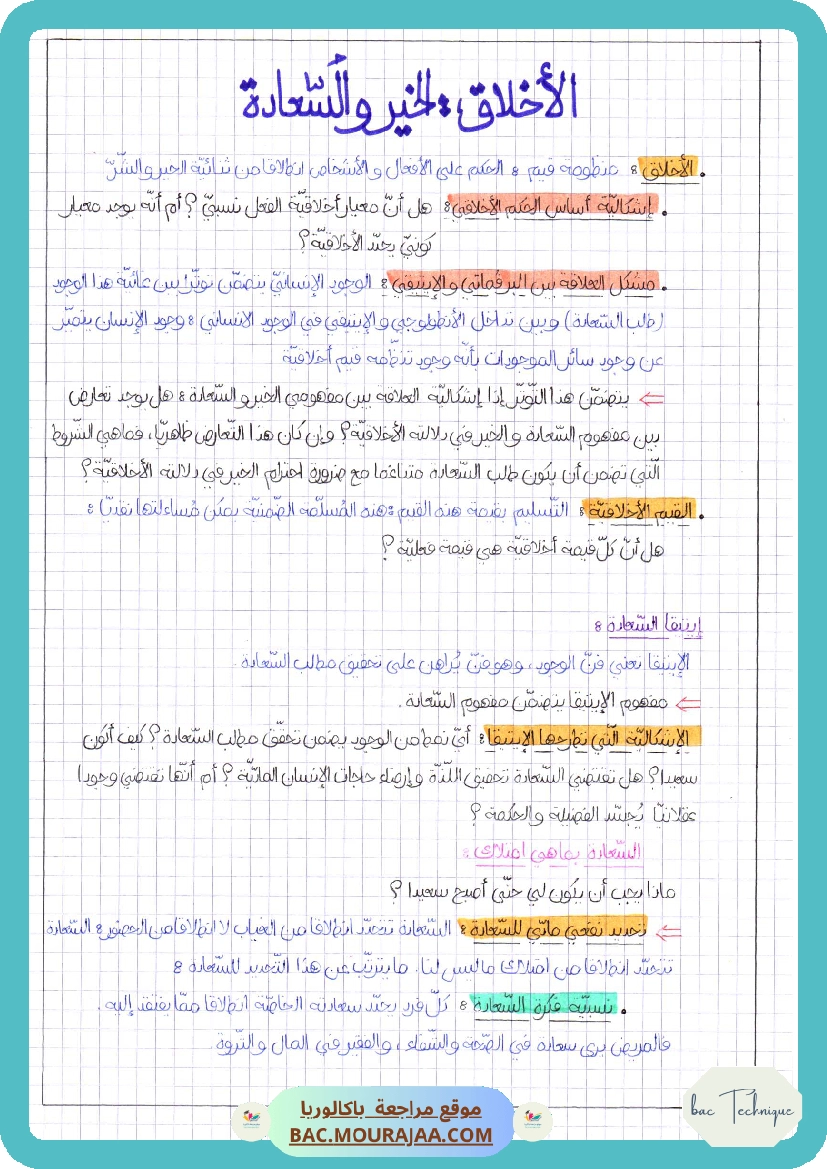 الأخلاق: الخير والسّعادة
. الأخلاق: منظومة قيم: الحكم على الأفعال والأشخاص انطلاقا من ثنائيّة الخير والشّرّ
. إشكاليّة أساس الحكم الأخلاقي: هل أنّ معيار أخلاقيّة الفعل نسبيّ؟ أم أنّه يوجد معيار
كونيّ يحدّد الأخلاقيّة؟
. مشكل العلاقة بين البرقماتي والإيتيقي: الوجود الإنسانيّ يتضمّن توتّرا بين غائيّة هذا الوجود
(طلب السّعادة) وبين تداخل الأنطولوجي والإيتيقي في الوجود الانساني: وجود الإنسان يتميّز
عن وجود سائر الموجودات بأنّه وجود تنظّمه قيم أخلاقيّة
⇐ يتضمّن هذا التّوتّر إذا إشكاليّة العلاقة بين مفهومي الخير والسّعادة: هل يوجد تعارض
بين مفهوم السّعادة والخير في دلالته الأخلاقيّة؟ وإن كان هذا التّعارض ظاهريّا، فماهي الشّروط
الّتي تضمن أن يكون طلب السّعادة متناغما مع ضرورة احترام الخير في دلالته الأخلاقيّة؟
. القيم الأخلاقيّة: التّسليم بقيمة هذه القيم: هذه المُسلّمة الضّمنيّة يمكن مُساءلتها نقديّا:
هل أنّ كلّ قيمة أخلاقيّة هي قيمة فعليّة؟
إيتيقا السّعادة:
الإيتيقا تعني فنّ الوجود، وهو فنّ يُراهن على تحقيق مطلب السّعادة.
⇐ مفهوم الإيتيقا يتضمّن مفهوم السّعادة.
الإشكاليّة الّتي تطرحها الإيتيقا: أيّ نمط من الوجود يضمن تحقّق مطلب السّعادة؟ كيف أكون
سعيدا؟ هل تقتضي السّعادة تحقيق اللّذّة وإرضاء حاجات الإنسان المادّيّة؟ أم أنّها تقتضي وجودا
عقلانيّا يُجسّد الفضيلة والحكمة؟
السّعادة بماهي امتلاك:
ماذا يجب أن يكون لي حتّى أصبح سعيدا؟
⇐ تحديد نفعي ماتّي للسّعادة: السّعادة تتحدّد انطلاقا من الغياب لا انطلاقا من الحضور: السّعادة
تتحدّد انطلاقا من امتلاك ماليس لنا. ما يترتّب عن هذا التّحديد للسّعادة:
. نسبيّة فكرة السّعادة: كلّ فرد يحدّد سعادته الخاصّة انطلاقا ممّا يفتقد إليه.
فالمريض يرى سعادة في الصّحّة والشّفاء، والفقير في المال والثّروة
bac Technique
موقع مراجعة باكالوريا
BAC.MOURAJAA.COM